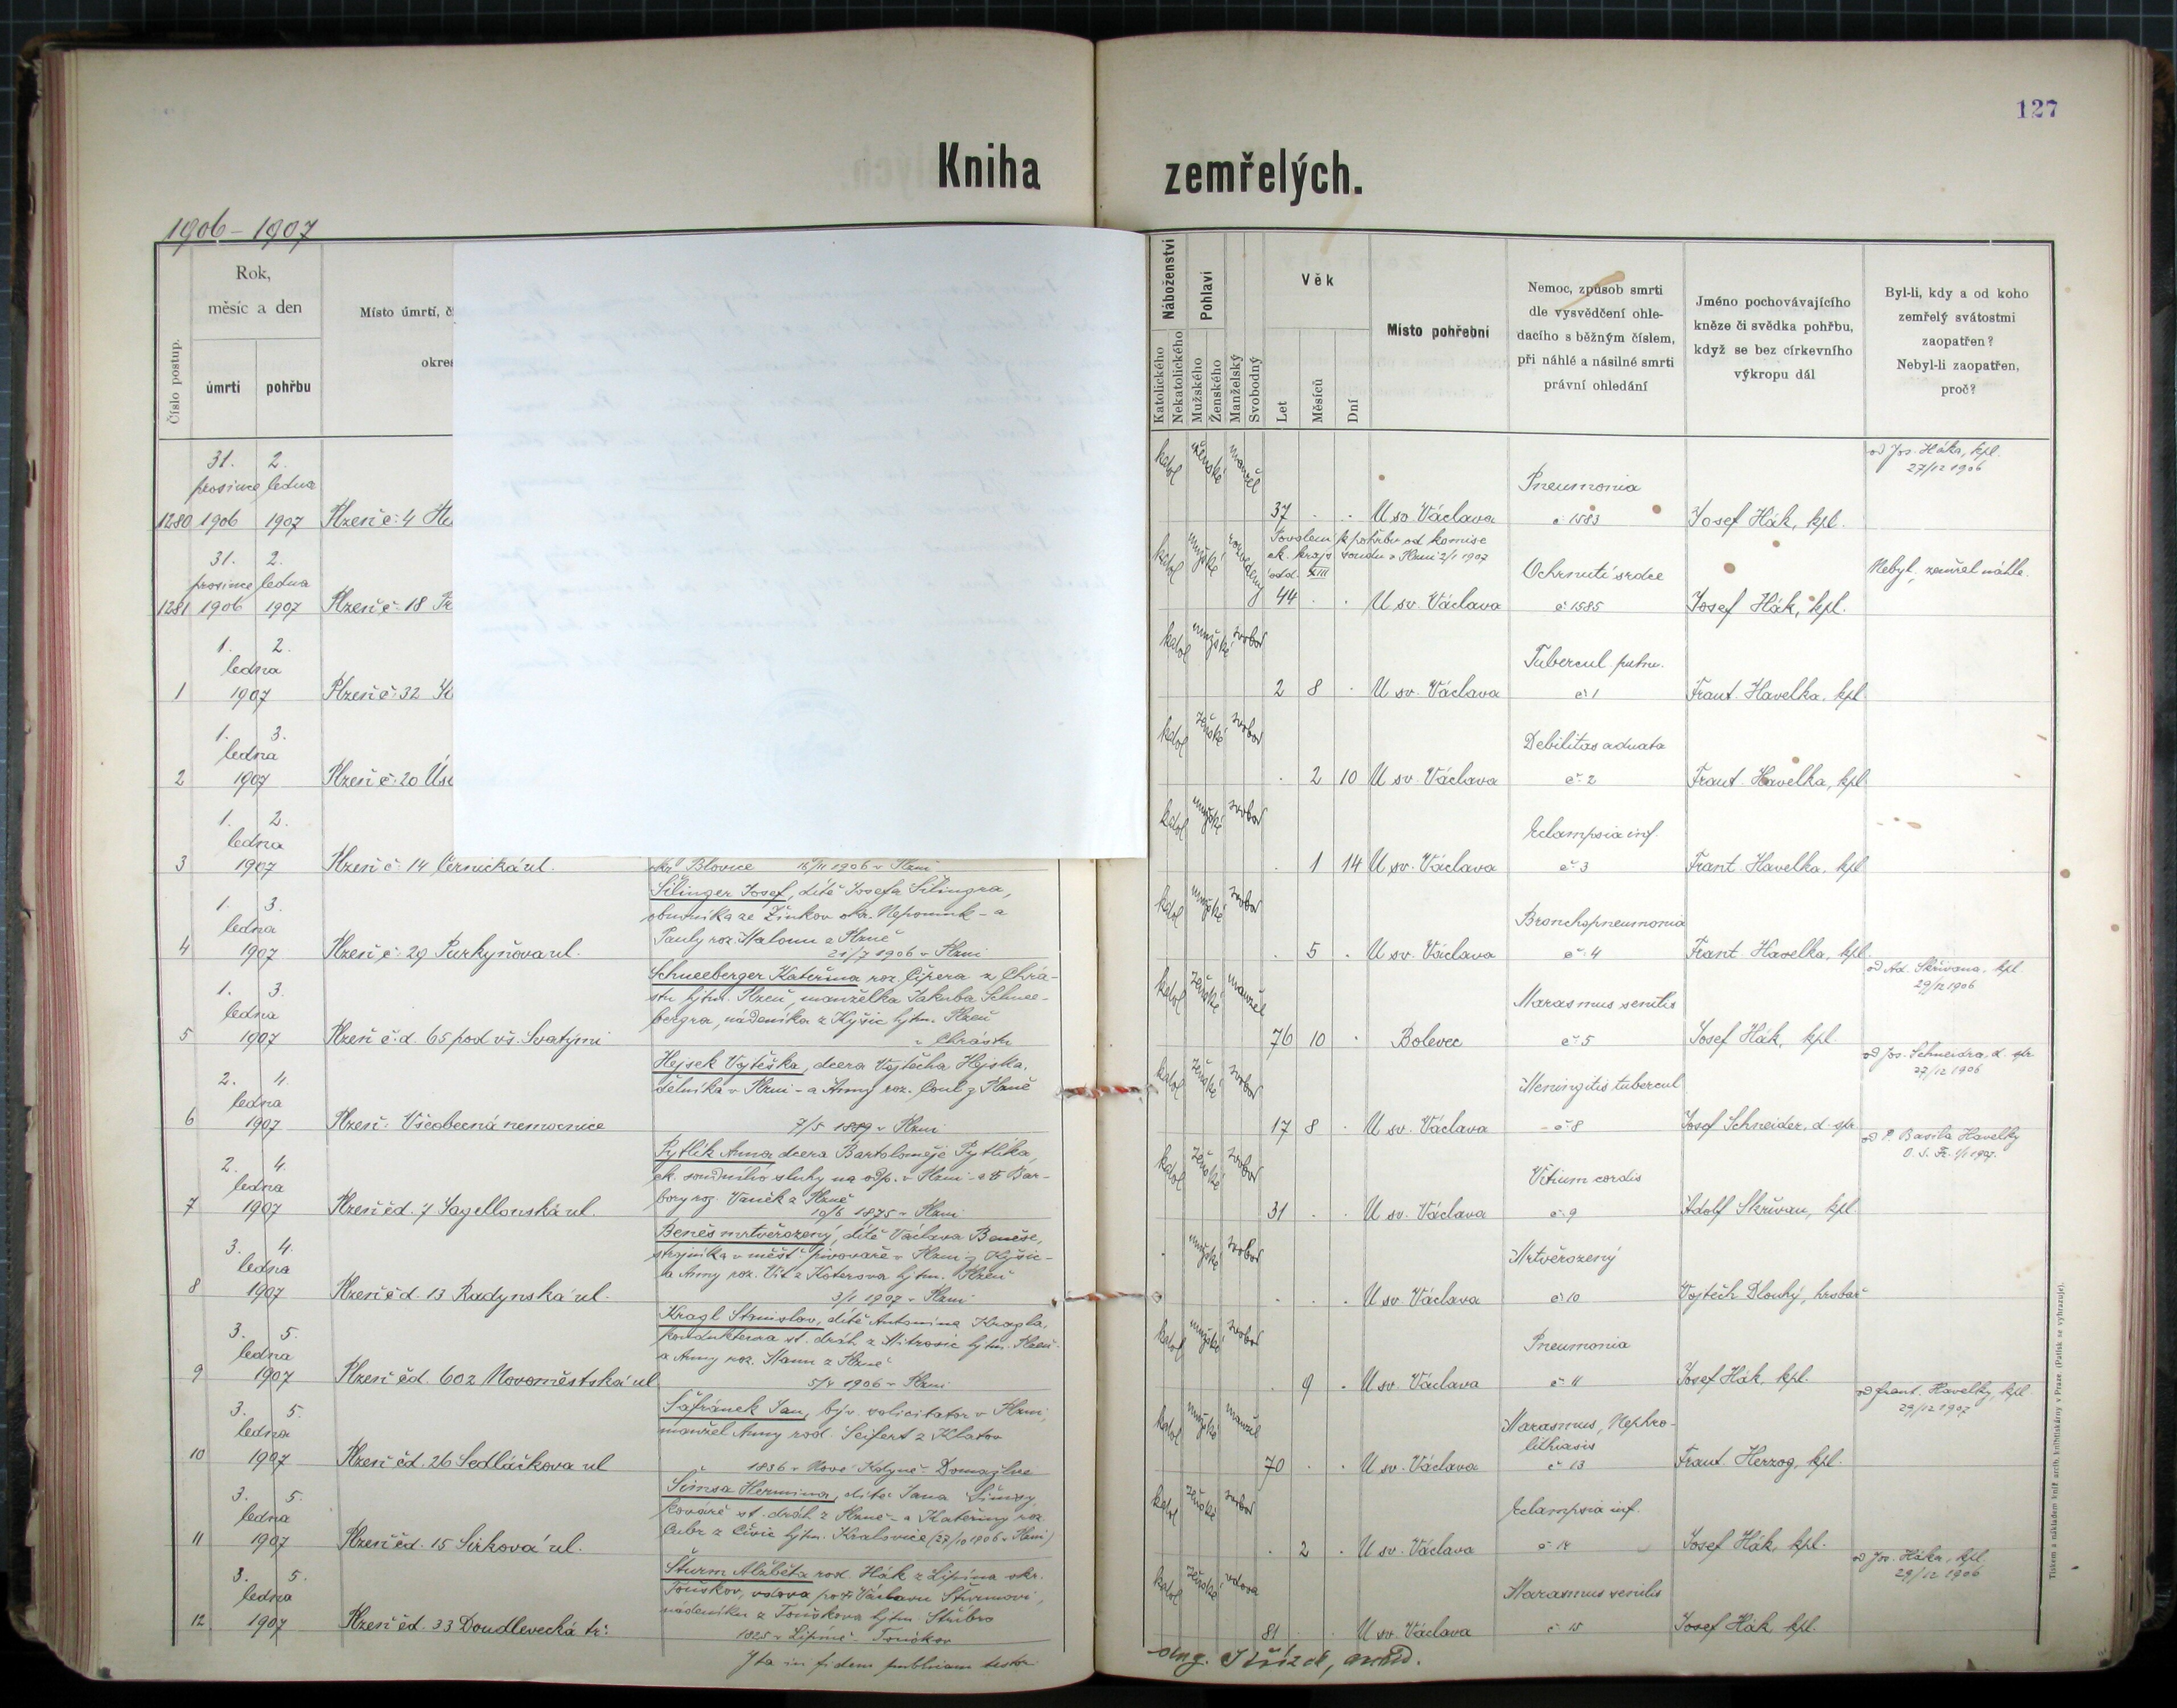 127
Kniha zemřelých.
1906–1907
Číslo postup.
Rok,
měsíc a den
úmrtí
pohřbu
Místo úmrtí, č
okre
Náboženství
Katolického
Nekatolického
Pohlaví
Mužského
Ženského
Manželský
Svobodný
Věk
Let
Měsíců
Dní
Místo pohřební
Nemoc, způsob smrti
dle vysvědčení ohle-
dacího s běžným číslem,
při náhlé a násilné smrti
právní ohledání
Jméno pochovávajícího
kněze či svědka pohřbu,
když se bez církevního
výkropu dál
Byl-li, kdy a od koho
zemřelý svátostmi
zaopatřen?
Nebyl-li zaopatřen,
proč?
31. 2.
prosince ledna
1280 1906 1907 Plzeň č. 4
katol ženské manžel
37 . . U sv. Václava
Pneumonia
č 1583
Josef Hák, kpl.
od Jos. Háka, kpl.
27/12 1906
31. 2.
prosince ledna
1281 1906 1907 Plzeň č. 18
katol mužské rozvedený
Povolení k pohřbu od komise
ck. kraj. soudu v Plzni 2/1 1907
odd. XIII
44 . . U sv. Václava
Ochrnutí srdce
č 1585
Josef Hák, kpl.
Nebyl, zemřel náhle.
1. 2.
ledna
1 1907 Plzeň č. 32
katol mužské svobod
2 8 . U sv. Václava
Tubercul pulm.
č 1
Frant. Havelka, kpl
1. 3.
ledna
2 1907 Plzeň č. 20 Úsl
katol ženské svobod
. 2 10 U sv. Václava
Debilitas adnata
č. 2
Frant. Havelka, kpl
1. 2.
ledna
3 1907 Plzeň č. 14 Černická ul.
okr. Blovice 16/11 1906 v Plzni
katol mužské svobod
. 1 14 U sv. Václava
Eclampsia inf.
č. 3
Frant. Havelka, kpl
1. 3.
ledna
4 1907 Plzeň č. 29 Purkyňova ul.
Šilinger Josef, dítě Josefa Šilingra,
obuvníka ze Žinkov okr. Nepomuk – a
Pauly roz. Maloun z Plzně
21/7 1906 v Plzni
katol mužské svobod
. 5 . U sv. Václava
Bronchopneumonia
č. 4
Frant. Havelka, kpl.
1. 3.
ledna
5 1907 Plzeň č.d. 65 pod vš. Svatými
Schneeberger Kateřina roz. Čipera z Chrá-
stu hjtm. Plzeň, manželka Jakuba Schnee-
bergra, nádeníka z Kyšic hjtm. Plzeň
v Chrástu
katol ženské manžel
76 10 . Bolevec
Marasmus senilis
č. 5
Josef Hák, kpl.
od Ad. Skřivana, kpl.
29/12 1906
2. 4.
ledna
6 1907 Plzeň: Všeobecná nemocnice
Hejsek Vojtěška, dcera Vojtěcha Hejska,
dělníka v Plzni – a Anny roz. Coul z Plzně
7/5 1889 v Plzni
katol ženské svobod
17 8 . U sv. Václava
Meningitis tubercul
č 8
Josef Schneider, d. spr
od Jos. Schneidra, d. spr
27/12 1906
2. 4.
ledna
7 1907 Plzeň čd. 7 Jagellonská ul.
Pytlík Anna dcera Bartoloměje Pytlíka,
ck. soudního sluhy na odp. v Plzni – a † Bar-
bory roz. Vaněk z Plzně
10/6 1875 v Plzni
katol ženské svobod
31 . . U sv. Václava
Vitium cordis
č. 9
Adolf Skřivan, kpl.
od P. Basila Havelky
O. S. Fr. 1/1 1907.
3. 4.
ledna
8 1907 Plzeň č d. 13 Radynská ul.
Beneš mrtvěrozený, dítě Václava Beneše,
strojníka v měšť. pivovaře v Plzni z Kyšic –
a Anny roz. Vít z Koterova hjtm. Plzeň
3/1 1907 v Plzni
. mužské svobod
. . . U sv. Václava
Mrtvěrozený
č. 10
Vojtěch Dlouhý, hrobař
3. 5.
ledna
9 1907 Plzeň čd. 602 Novoměstská ul
Kragl Stanislav, dítě Antonína Kragla,
konduktera st. dráh z Mitrovic hjtm. Plzeň –
a Anny roz. Mann z Plzně
5/4 1906 v Plzni
katol mužské svobod
. 9 . U sv. Václava
Pneumonia
č 11
Josef Hák, kpl.
3. 5.
ledna
10 1907 Plzeň čd. 26 Sedláčkova ul
Šafránek Jan, býv. solicitator v Plzni,
manžel Anny rod. Seifert z Klatov
1836 v Nové Kdyně – Domažlice
katol mužské manžel
70 . . U sv. Václava
Marasmus, Nephro-
lithiasis
č 13
Frant. Herzog, kpl.
od Frant. Havelky, kpl
29/12 1907
3. 5.
ledna
11 1907 Plzeň čd. 15 Sirková ul.
Šimsa Hermina, dítě Jana Šimsy
kováře st. dráh z Plzně – a Kateřiny roz.
Cubr z Čivic hjtm. Kralovice (27/10 1906 v Plzni)
katol ženské svobod
. 2 . U sv. Václava
Eclampsia inf.
č. 14
Josef Hák, kpl.
3. 5.
ledna
12 1907 Plzeň čd. 33 Doudlevecká tř.
Šturm Alžběta rod. Hák z Lipína okr.
Touškov, vdova po † Václavu Šturmovi,
nádeníku z Touškova hjtm. Stříbro
1825 v Lipíně – Touškov
katol ženské vdova
81 . . U sv. Václava
Marasmus senilis
č 15
Josef Hák, kpl.
od Jos. Háka, kpl.
29/12 1906
Ita in fidem publicam testor
Aug. Střízek, archid.
Tiskem a nákladem kníž. arcib. knihtiskárny v Praze. (Patisk se vyhrazuje).